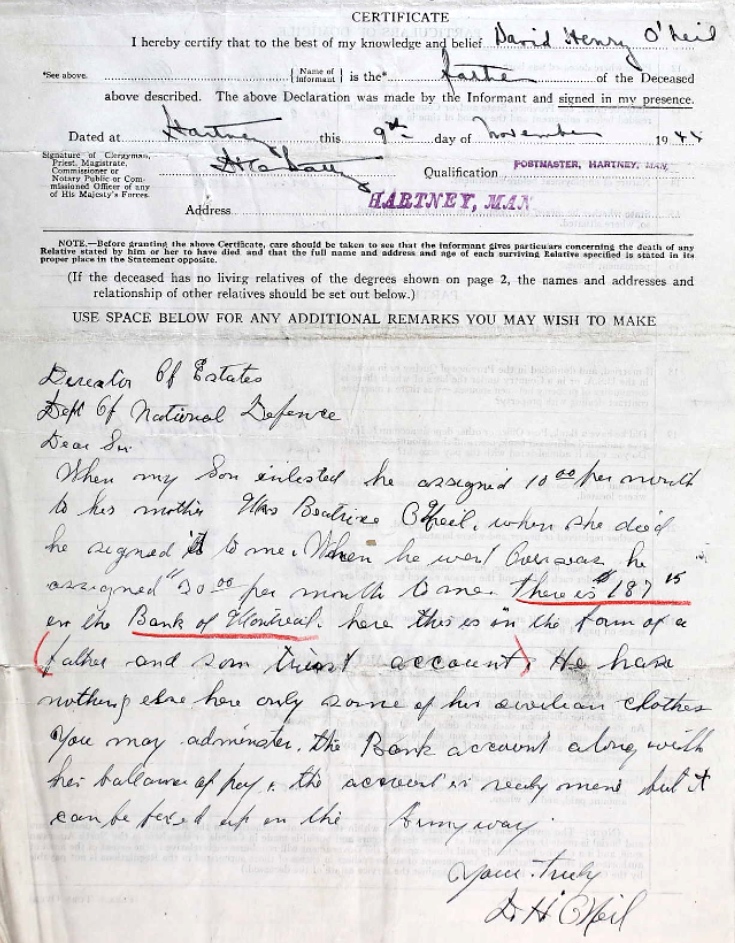 CERTIFICATE
I hereby certify that to the best of my knowledge and belief David Henry O'Neil
*See above. {Name of Informant} is the* father of the Deceased
above described. The above Declaration was made by the Informant and signed in my presence.
Dated at Hartney this 9th day of November 1944
Signature of Clergyman,
Priest, Magistrate,
Commissioner or
Notary Public or Com-
missioned Officer of any
of His Majesty's Forces.
Qualification POSTMASTER, HARTNEY, MAN.
Address HARTNEY, MAN
NOTE.—Before granting the above Certificate, care should be taken to see that the informant gives particulars concerning the death of any
Relative stated by him or her to have died and that the full name and address and age of each surviving Relative specified is stated in its
proper place in the Statement opposite.
(If the deceased has no living relatives of the degrees shown on page 2, the names and addresses and
relationship of other relatives should be set out below.)
USE SPACE BELOW FOR ANY ADDITIONAL REMARKS YOU MAY WISH TO MAKE
Director Of Estates
Dept Of National Defence
Dear Sir
When my Son inlested he assigned 10 00 per month
to his mother Mrs Beatrice O'Neil, when she died
he signed it to me. When he went Overseas he
assigned 20 00 per month to me. There is $187 15
in the Bank of Montreal. here this is in the form of a
(father and son trust account). He has
nothing else here only some of his sivilian clothes
You may administer the Bank account along with
his ballance of pay, the account is realy mine but it
can be fixed up in the Army way.
Yours truly
D. H. O'Neil